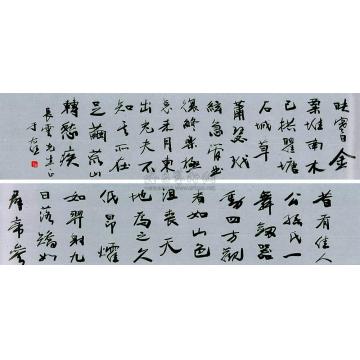 映寒日金
粟堆南木
已拱瞿塘
石城草
蕭瑟玳
絃急管曲
復終樂極
哀來月東
出老夫不
知其所往
足繭荒山
轉愁疾
先生正
于右任
昔有佳人
公孫氏一
舞劍器
動四方觀
者如山色
沮喪天
地為之久
低昂㸌
如羿射九
日落矯如
群帝參